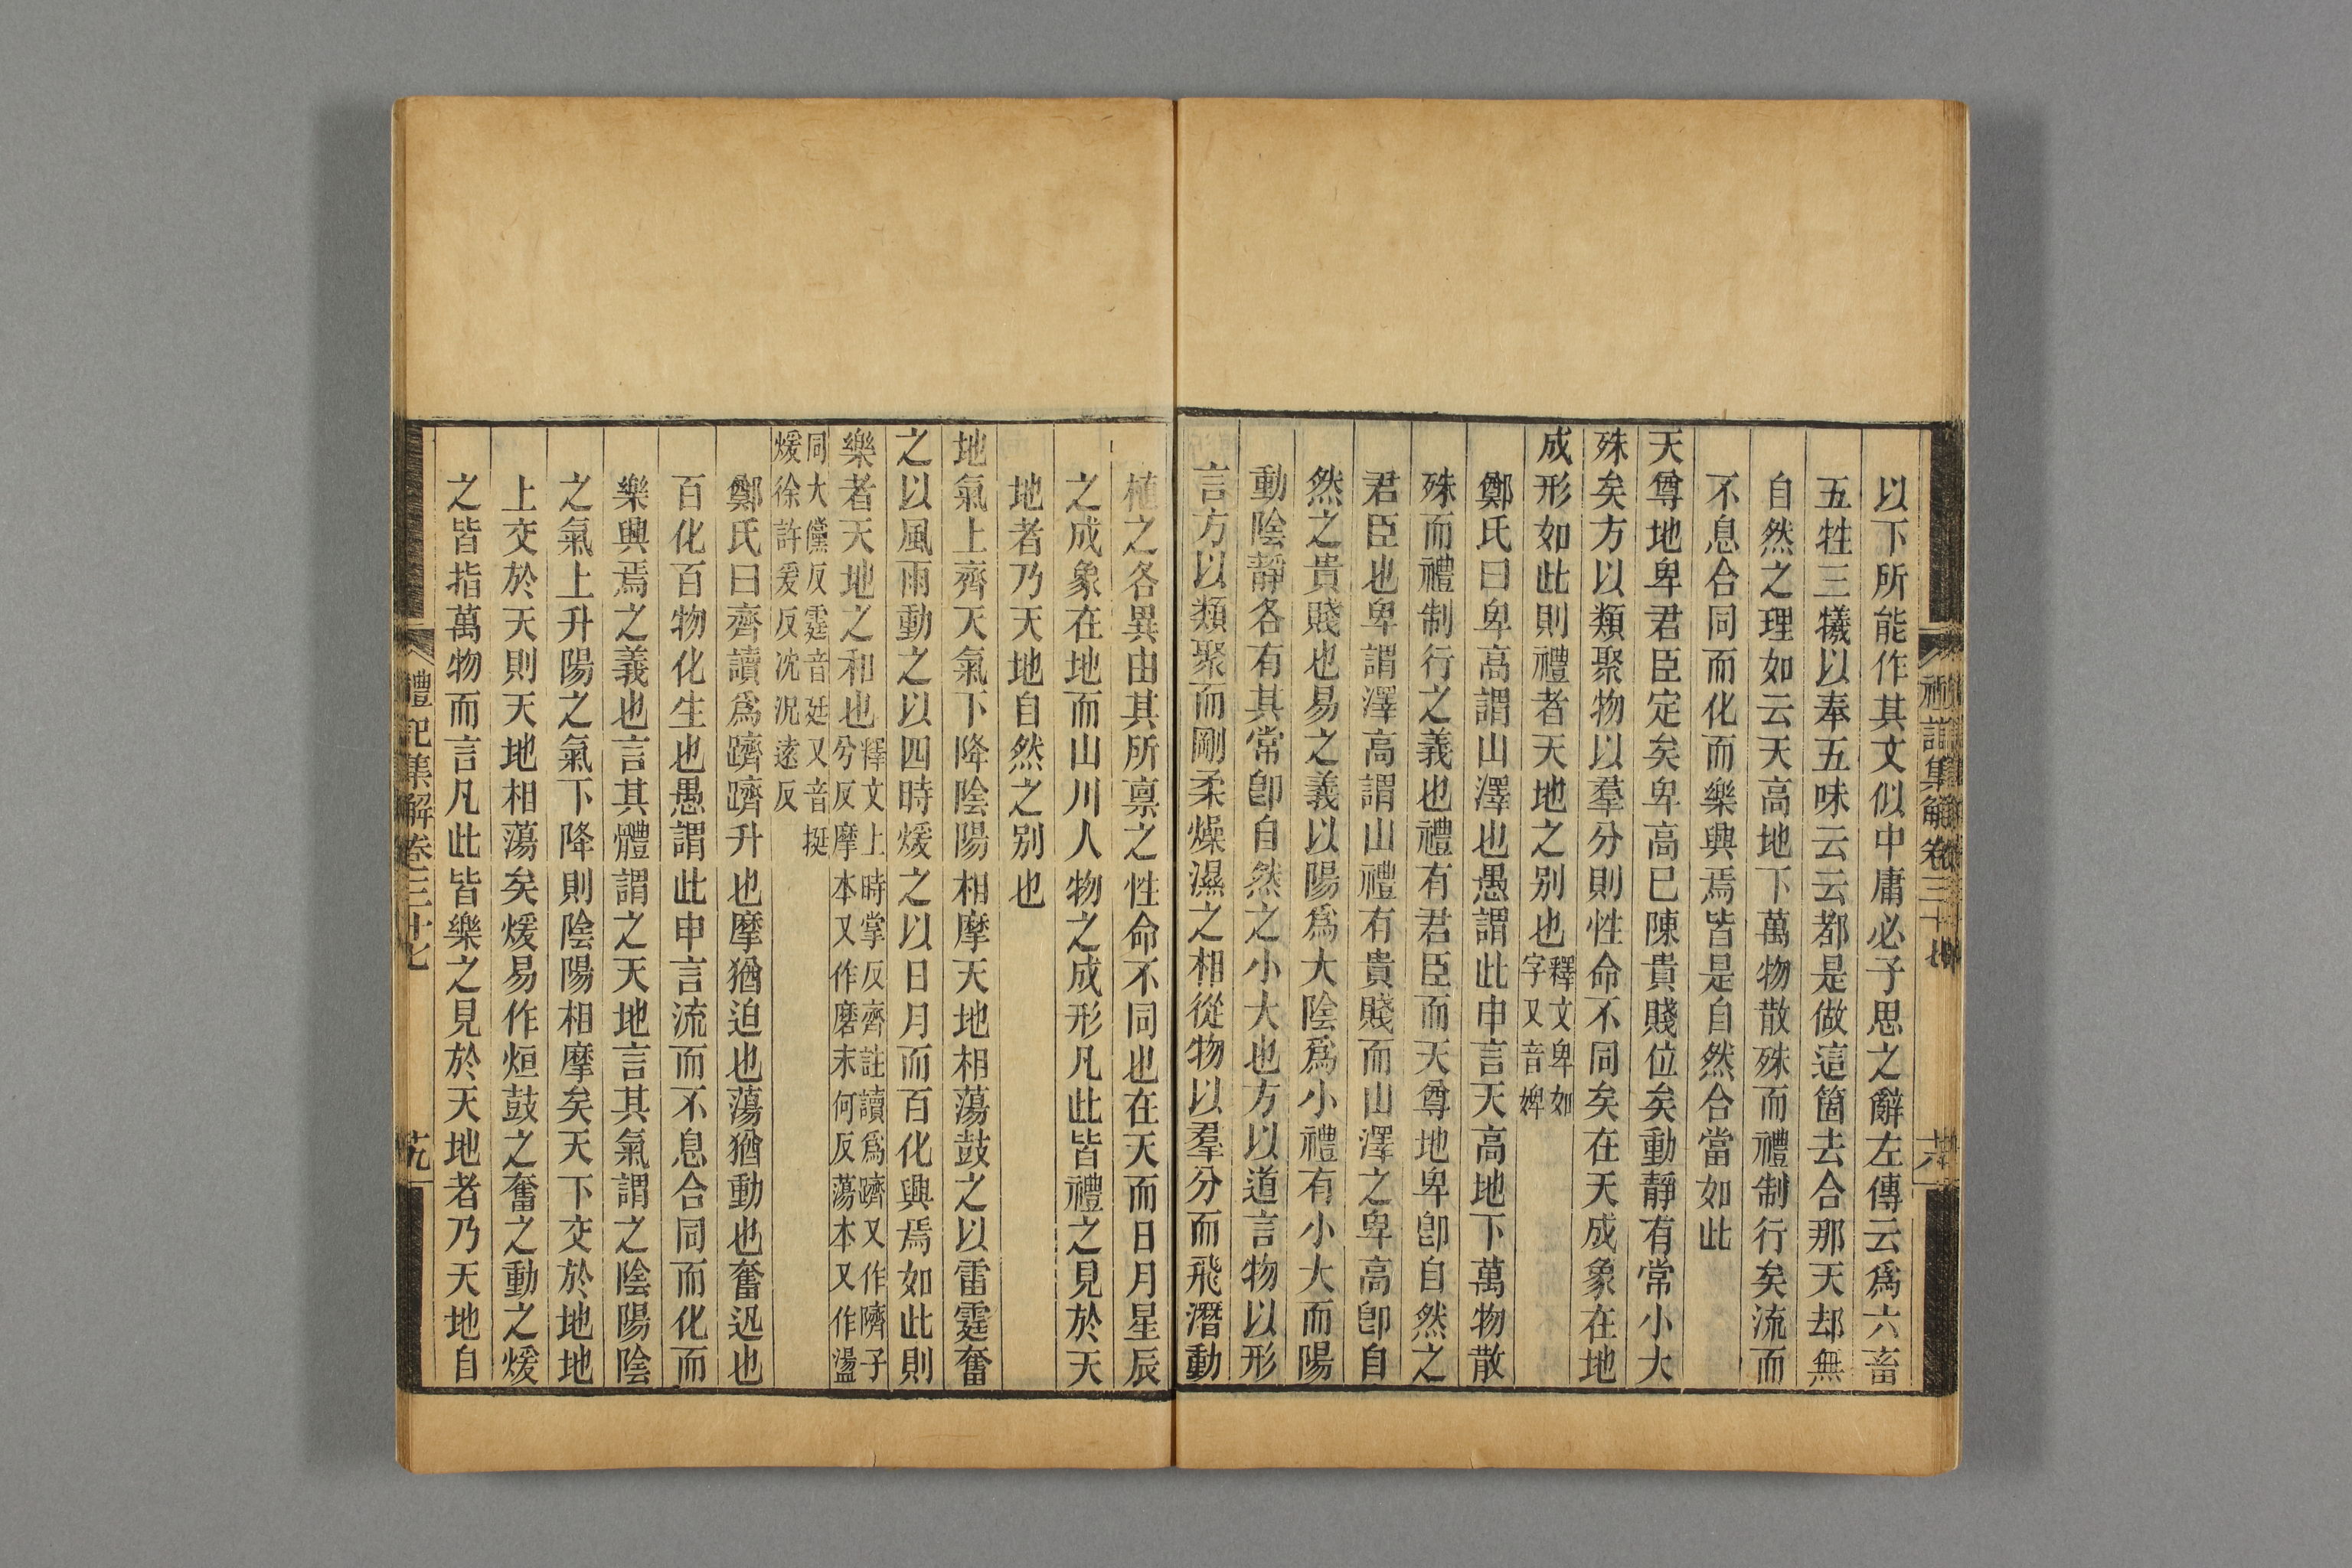 以下所能作其文似中庸必子思之辭左傳云爲六畜
五牲三犧以奉五味云云都是做這箇去合那天却無
自然之理如云天高地下萬物散殊而禮制行矣流而
不息合同而化而樂興焉皆是自然合當如此
天尊地卑君臣定矣卑高已陳貴賤位矣動靜有常小大
殊矣方以類聚物以羣分則性命不同矣在天成象在地
成形如此則禮者天地之别也釋文卑如字又音婢
鄭氏曰卑高謂山澤也愚謂此申言天高地下萬物散
殊而禮制行之義也禮有君臣而天尊地卑卽自然之
君臣也卑謂澤高謂山禮有貴賤而山澤之卑高卽自
然之貴賤也易之義以陽爲大陰爲小禮有小大而陽
動陰靜各有其常卽自然之小大也方以道言物以形
言方以類聚而剛柔燥濕之相從物以羣分而飛潛動
植之各異由其所禀之性命不同也在天而日月星辰
之成象在地而山川人物之成形凡此皆禮之見於天
地者乃天地自然之别也
地氣上齊天氣下降陰陽相摩天地相蕩鼓之以雷霆奮
之以風雨動之以四時煖之以日月而百化興焉如此則
樂者天地之和也釋文上時掌反齊註讀爲躋又作隮子
兮反摩本又作磨末何反蕩本又作盪
同大儻反霆音廷又音挺
煖徐許爰反沈況遠反
鄭氏曰齊讀爲躋躋升也摩猶迫也蕩猶動也奮迅也
百化百物化生也愚謂此申言流而不息合同而化而
樂興焉之義也言其體謂之天地言其氣謂之陰陽陰
之氣上升陽之氣下降則陰陽相摩矣天下交於地地
上交於天則天地相蕩矣煖易作烜鼓之奮之動之煖
之皆指萬物而言凡此皆樂之見於天地者乃天地自
禮記集解卷三十七